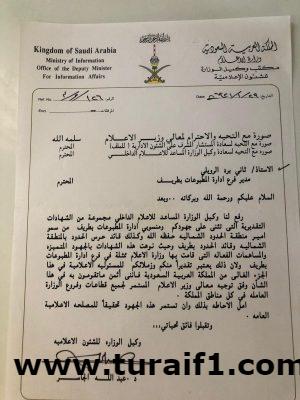 Kingdom of Saudi Arabia
Ministry of Information
Office of the Deputy Minister
For Information Affairs
المملكة العربية السعودية
وزارة الإعلام
مكتب وكيل الوزارة
للشئون الإعلامية
صورة مع التحيه والاحترام لمعالي وزير الاعلام سلمه الله
صورة مع التحيه لسعادة المستشار المشرف على الشئون الادارية ( للملف ) المحترم
صورة مع التحيه لسعادة وكيل الوزارة المساعد للاعلام الداخلي المحترم
الاستاذ/ ثاني الرويلي
مدير فرع ادارة المطبوعات بطريف المحترم
السلام عليكم ورحمة الله وبركاته وبعد
رفع لنا وكيل الوزارة المساعد للاعلام الداخلي مجموعة من الشهادات
التقديرية التي تثني على جهودكم ومنسوبي ادارة المطبوعات بطريف من سمو
امير منطقة الحدود الشماليه حفظه الله وكذلك قائد حرس الحدود بالمنطقة
الشماليه وقائد الحدود بطريف حيث نوهت هذه الشهادات بالجهود المتميزه
والمساهمات الفعاله التي قامت بها وزارة الاعلام ممثلة في فرع ادارة المطبوعات
بطريف ولان ذلك يعتبر تقديراً منكم وزملائكم للمسئوليه الاعلاميه في هذا
الجزء الغالي من المملكة العربية السعودية فانني أثمن ماتقومون به في هذا
الشأن وفق توجيه معالي وزير الاعلام المستمر لجميع قطاعات وفروع الوزارة
العامله في كل مناطق المملكة .
امل الاحاطه بذلك وان تستمر هذه الجهود تحقيقاً للمصلحه الاعلاميه
العامه .
وتقبلوا فائق تحياتي،،،
وكيل الوزاره للشئون الاعلاميه
www.turaif1.com
د. عبدالله الجاسر